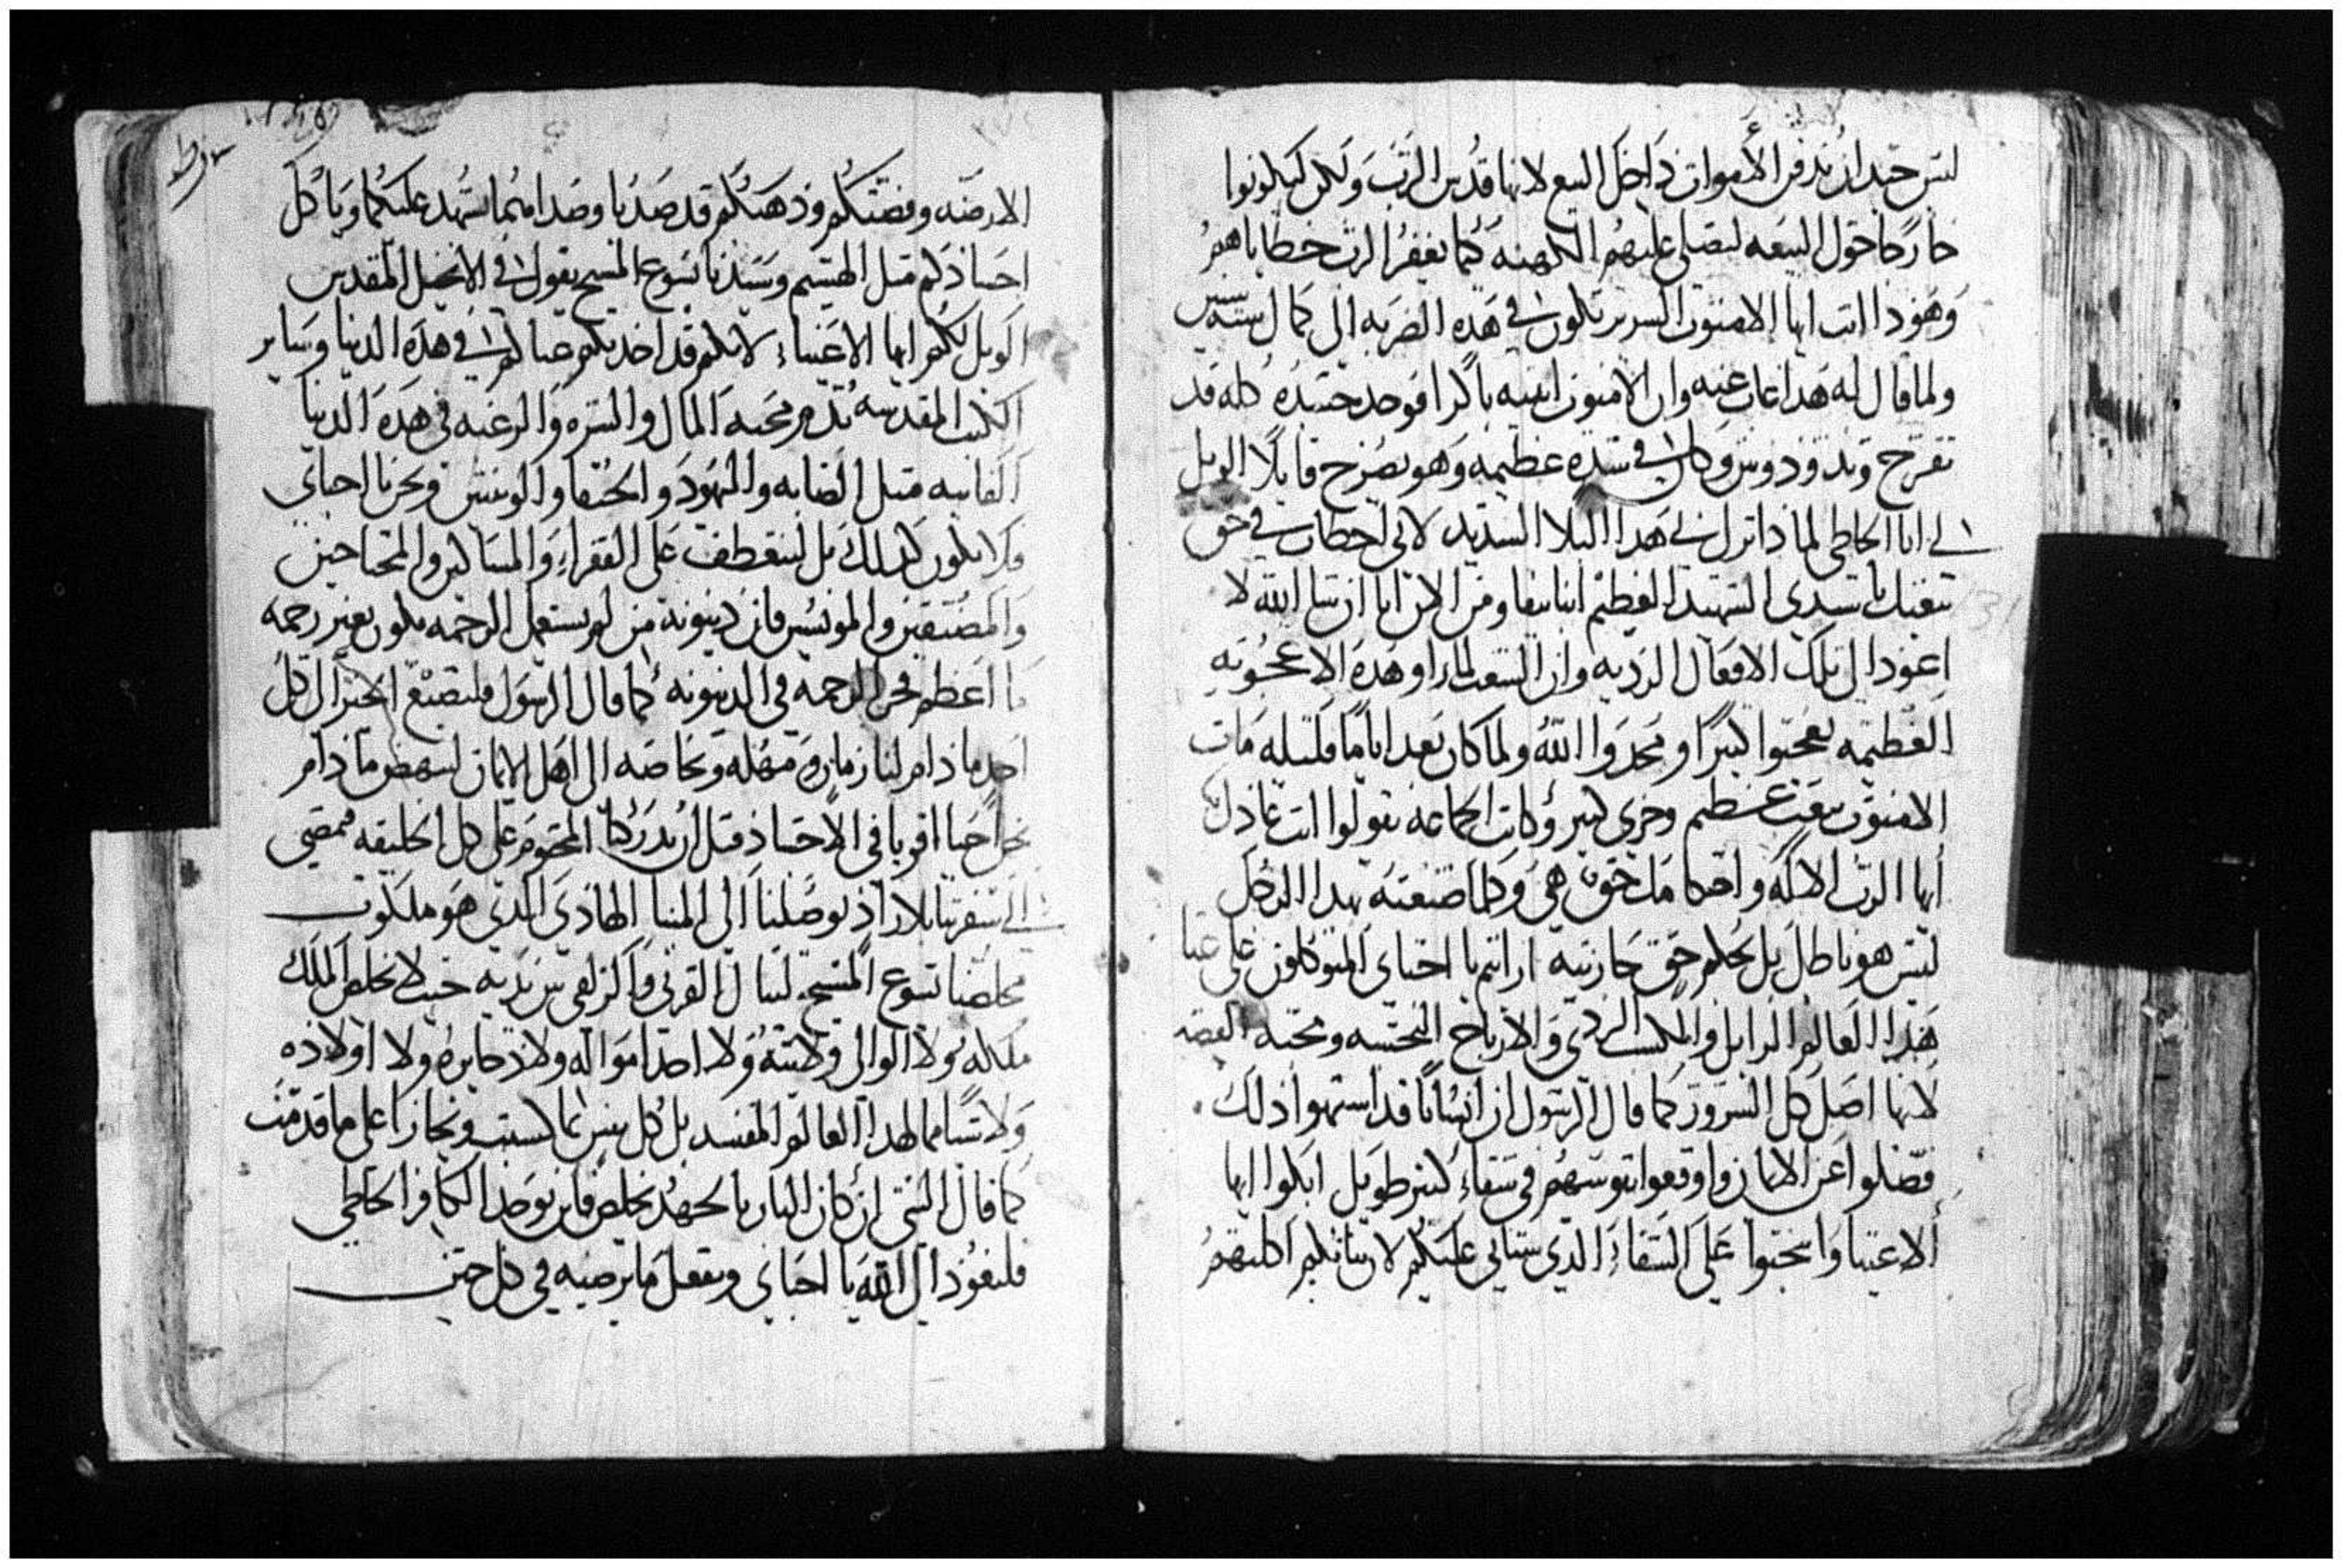 ليس جيد ان ندفن الأموات داخل البيع لانها قدس الرب ولكن ليكونوا
خارجا حول البيعه ليصلى عليهم الكهنه كما يغفر الرب خطاياهم
وهوذا انت ايها الاغنون الشرير تكون في هذه الضربه الى كمال سنه
ولما قال له هدا غاب عنه وان الاغنون انتبه باكرا فوجد جسده كله قد
تقرح وتدود وكان في شده عظيمه وهو يصرخ قايلا الويل
لي انا الخاطي لماذا نزل بي هدا البلا الشديد لاني اخطات في حق
بيعتك يا سيدي الشهيد العظيم ومن الان ان شا الله لا
اعود الى تلك الافعال الرديه وان الشعب لما راو هده الاعجوبه
العظيمه تعجبوا كثيرا ومجدوا الله ولما كان بعد اياما قليله مات
الاغنون بتعب عظيم وخزى كبير وكانت الجماعه يقولوا انت عادل
ايها الرب الاله واحكامك حق هي وكلما صنعته بهدا الرجل
ليس هو باطل بل بحكم حق جازيته ارايتم يا احباى المتوكلون على غنا
هدا العالم الزايل والمكسب الردي والارباح النجسه ومحبة الفضه
لانها اصل كل الشرور كما قال الرسول ان اناسا قد اشتهوا ذلك
فضلوا عن الايمان واوقعوا نفوسهم في شقاء كثير طويل ابكوا ايها
الاغنيا وانتحبوا على الشقاء الدي سياتي عليكم لان ثيابكم اكلتهم
الارضه وفضتكم وذهبكم قد صديا وصداهما يشهد عليكما وياكل
اجسادكم مثل الهشيم وسيدنا يسوع المسيح يقول في الانجيل المقدس
الويل لكم ايها الاغنياء لانكم قد اخدتم عزاكم في هده الدنيا وساير
الكتب المقدسه تدم محبه المال والشره والرغبه في هده الدنيا
الفانيه مثل الصابه واليهود والحنفا والوثنيين ونحن يا احباي
فلا نكون كدلك بل لنتعطف على الفقراء والمساكين والمحتاجين
والمضيقين والمونسين فان دينونة من لم يستعمل الرحمه تكون بغير رحمه
ما اعظم فخر الرحمه في الدينونه كما قال الرسول فلنصنع الخير الى كل
احد ما دام لنا زمان ومهله وبخاصه الى اهل الايمان لننهض ما دام
نحن احيا اقويا في الاجساد قبل ان يدركنا المحتوم على كل الخليقه فنمضي
الى سفرتنا بلا زاد يوصلنا الى المينا الهادي الدي هو ملكوت
مخلصنا يسوع المسيح لننال القربى والزلفى بين يديه حيث لا يخلص الملك
ملكه ولا الوالي ولايته ولا احدا امواله ولا ذخايره ولا اولاده
ولا شيا مما لهدا العالم المفسد بل كل نفس بما كسبت وتجازا على ما قدمت
كما قال النبي ان كان البار بالجهد يخلص فاين يوجد الكافر الخاطي
فلنعود الى الله يا احباي ونفعل ما يرضيه في كل حين